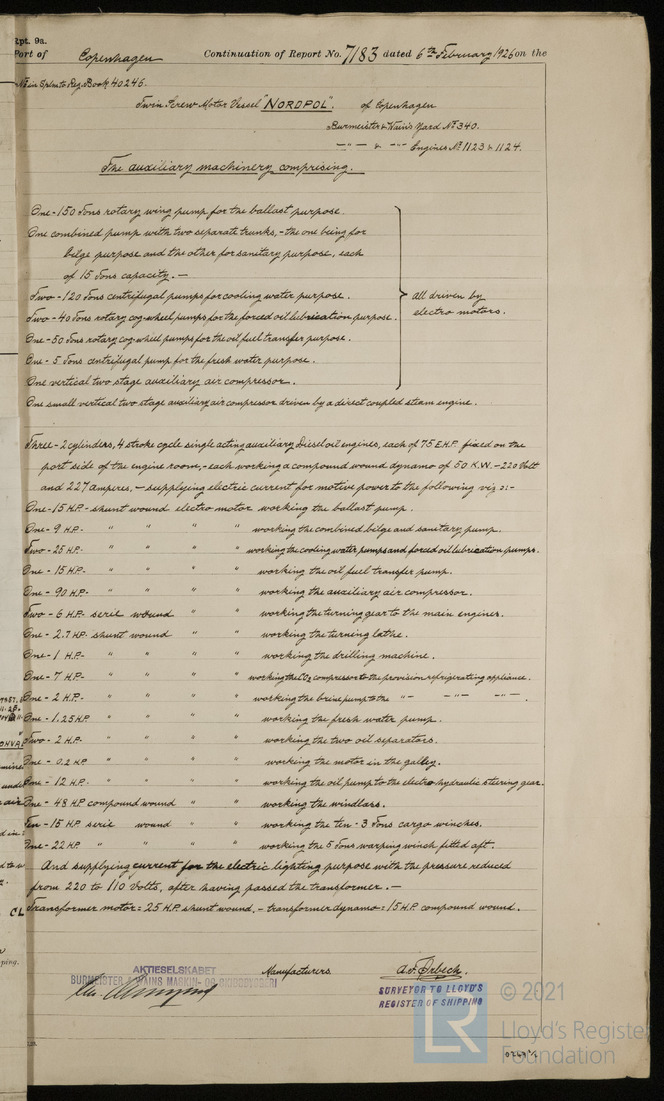 Rpt. 9a.
Port of Copenhagen Continuation of Report No. 7183 dated 6th February 1926 on the
No in Splmto Reg. Book 40246.
Twin Screw Motor Vessel "NORDPOL". of Copenhagen
Burmeister & Wain's Yard No 340.
—"— & —"— Engines No 1123 & 1124.
The auxiliary machinery comprising.
One - 150 Tons rotary wing pump for the ballast purpose.
One combined pump with two separate trunks, - the one being for
bilge purpose and the other for sanitary purpose, each
of 15 Tons capacity. —
Two - 120 Tons centrifugal pumps for cooling water purpose.
Two - 40 Tons rotary cog-wheel pumps for the forced oil lubrication purpose.
One - 50 Tons rotary cog-wheel pumps for the oil fuel transfer purpose.
One - 5 Tons centrifugal pump for the fresh water purpose.
One vertical two stage auxiliary air compressor.
all driven by
electro motors.
One small vertical two stage auxiliary air compressor driven by a direct coupled steam engine.
Three - 2 cylinders, 4 stroke cycle single acting auxiliary Diesel oil engines, each of 75 E.H.P. fixed on the
port side of the engine room, - each working a compound wound dynamo of 50 K.W. - 220 Volt
and 227 amperes, - supplying electric current for motive power to the following viz:-
One - 15 H.P. - shunt wound electro motor working the ballast pump.
One - 9 H.P. - " " " " working the combined bilge and sanitary pump.
Two - 25 H.P. - " " " " working the cooling water pumps and forced oil lubrication pumps.
One - 15 H.P. - " " " " working the oil fuel transfer pump.
One - 90 H.P. - " " " " working the auxiliary air compressor.
Two - 6 H.P. - serie wound " " working the turning gear to the main engines.
One - 2.7 H.P. shunt wound " " working the turning lathe.
One - 1 H.P. - " " " " working the drilling machine.
One - 7 H.P. - " " " " working the compressor to the provision refrigerating appliance.
One - 2 H.P. - " " " " working the brine pump to the "— —"— —"— .
One - 1.25 H.P. " " " " working the fresh water pump.
Two - 2 H.P. - " " " " working the two oil separators.
One - 0.2 H.P. " " " " working the motor in the galley.
One - 12 H.P. - " " " " working the oil pump to the electro-hydraulic steering gear.
One - 48 H.P. compound wound " " working the windlass.
Ten - 15 H.P. serie wound " " working the ten - 3 Tons cargo winches.
One - 22 H.P. " " " " working the 5 Tons warping winch fitted aft.
And supplying current for the electric lighting purpose with the pressure reduced
from 220 to 110 Volts, after having passed the transformer. —
Transformer motor = 25 H.P. shunt wound, - transformer dynamo = 15 H.P. compound wound.
AKTIESELSKABET
BURMEISTER & WAINS MASKIN- OG SKIBSBYGGERI
Manufacturers.
SURVEYOR TO LLOYD'S
REGISTER OF SHIPPING
© 2021
LR
Lloyd's Register
Foundation